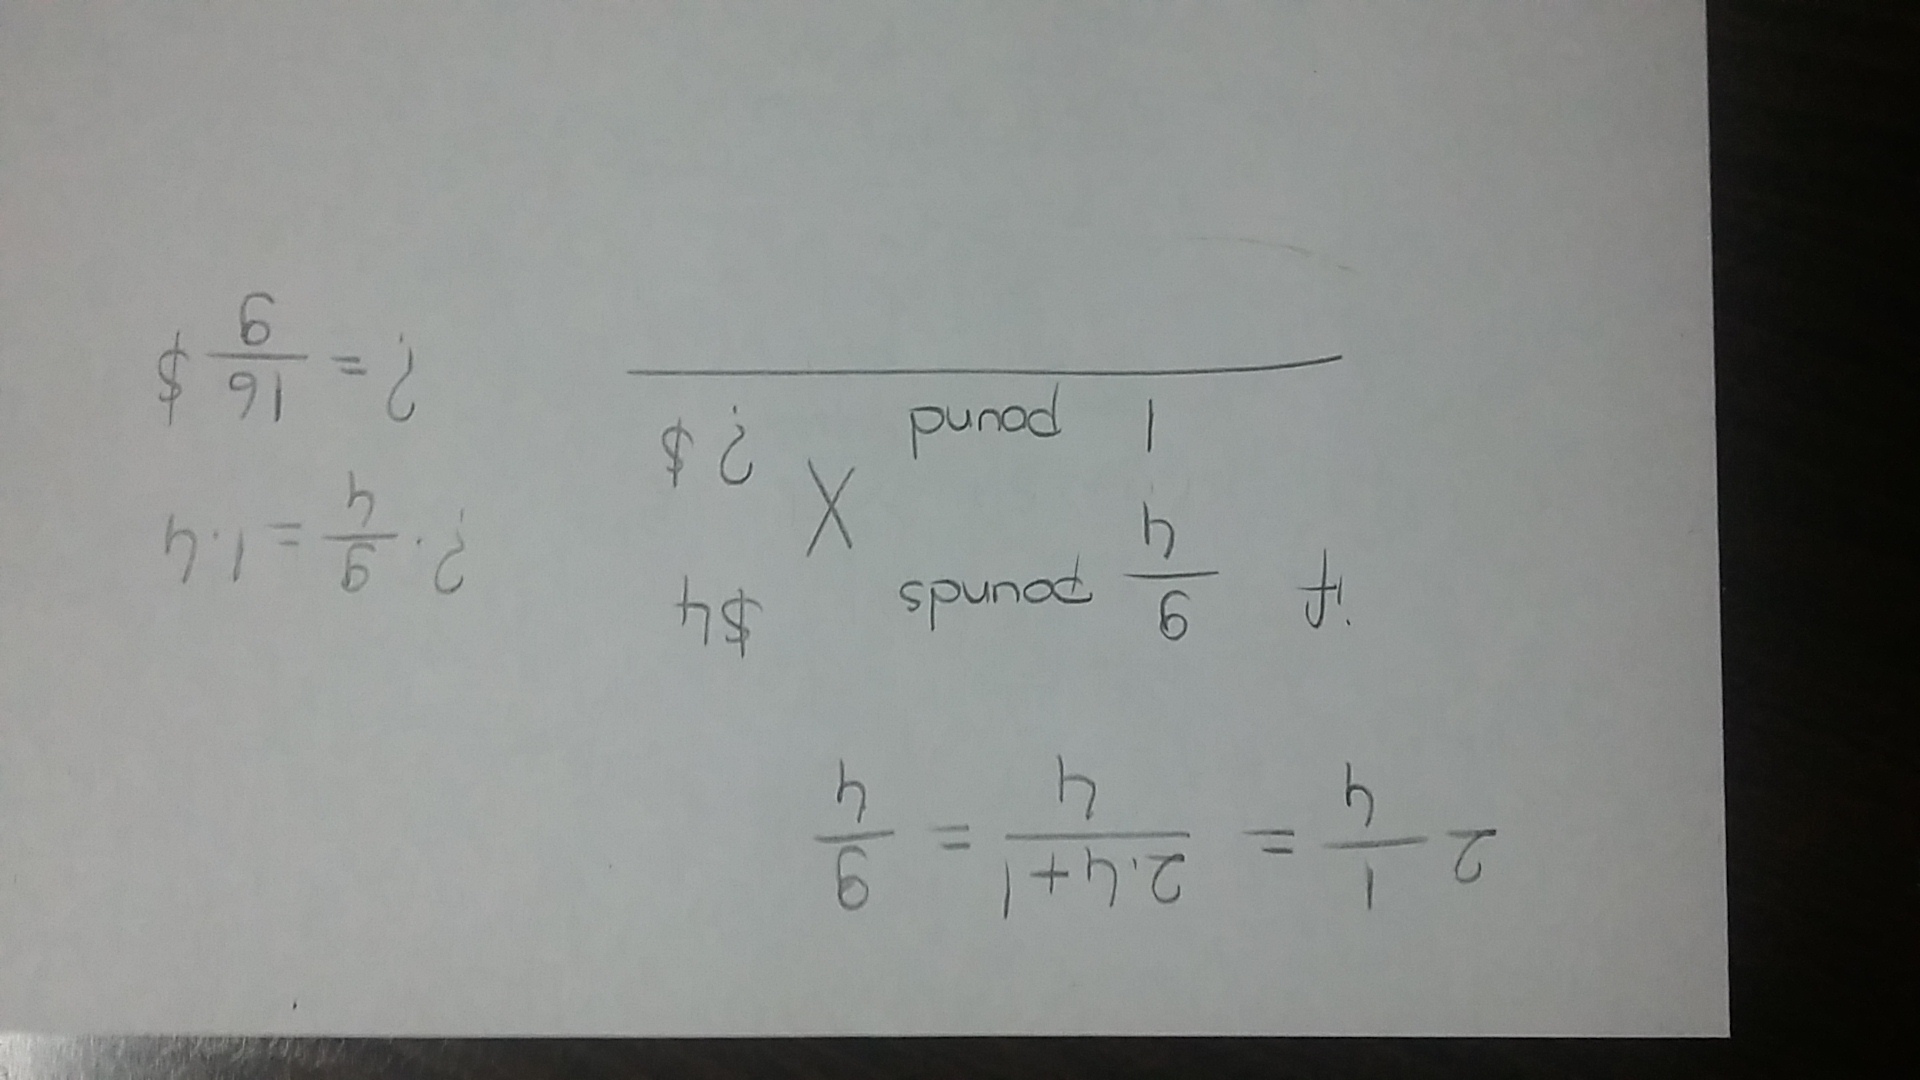 2 1/4 = 2.4+1/4 = 9/4
if 9/4 pounds $4
X
1 pound ? $
? . 9/4 = 1.4
? = 16/9 $